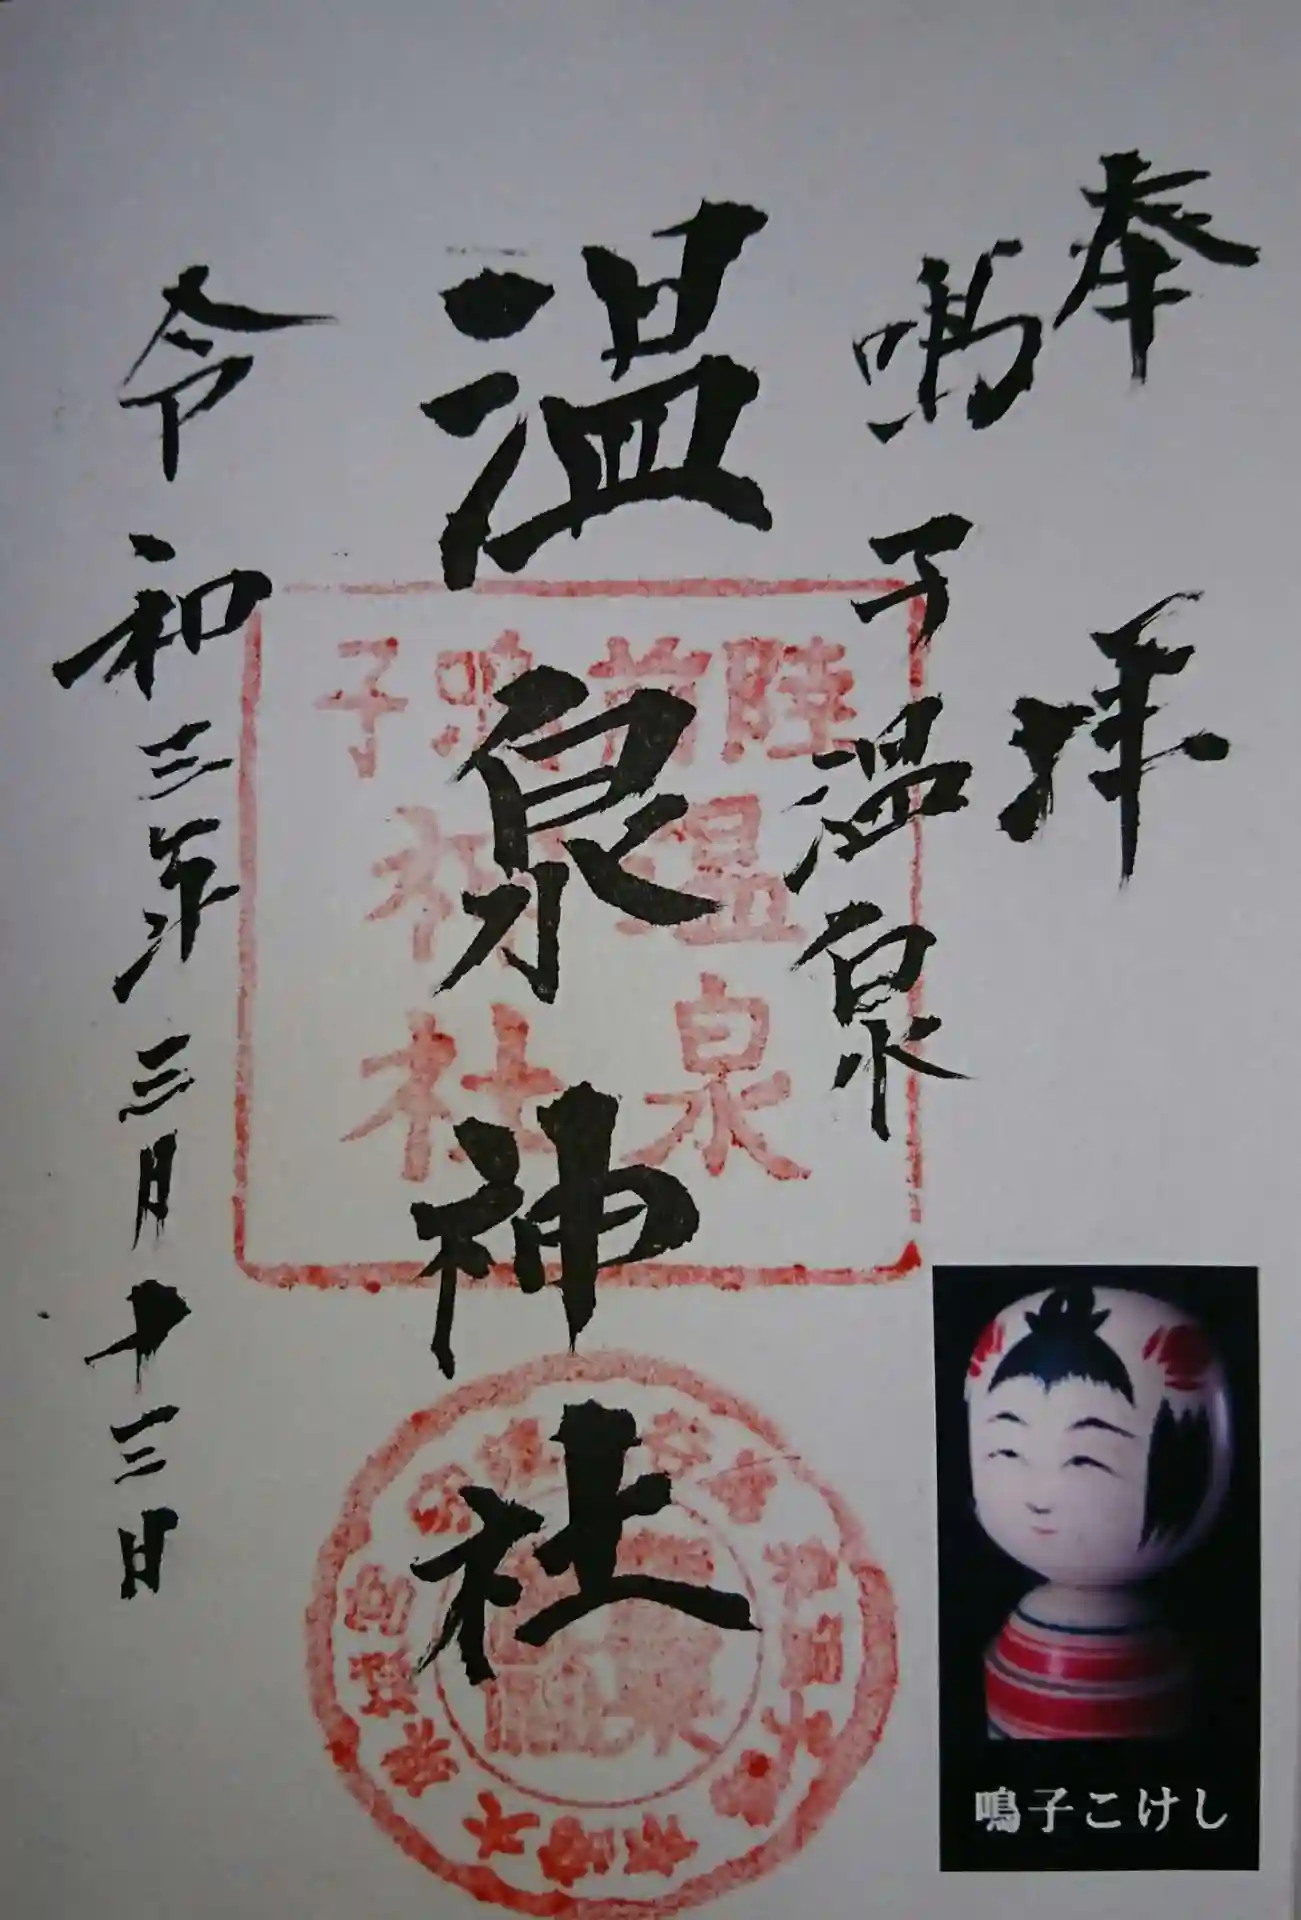 奉拝
鳴子温泉
温泉神社
令和三年三月十三日
陸前
鳴子
温泉
神社
鳴子こけし